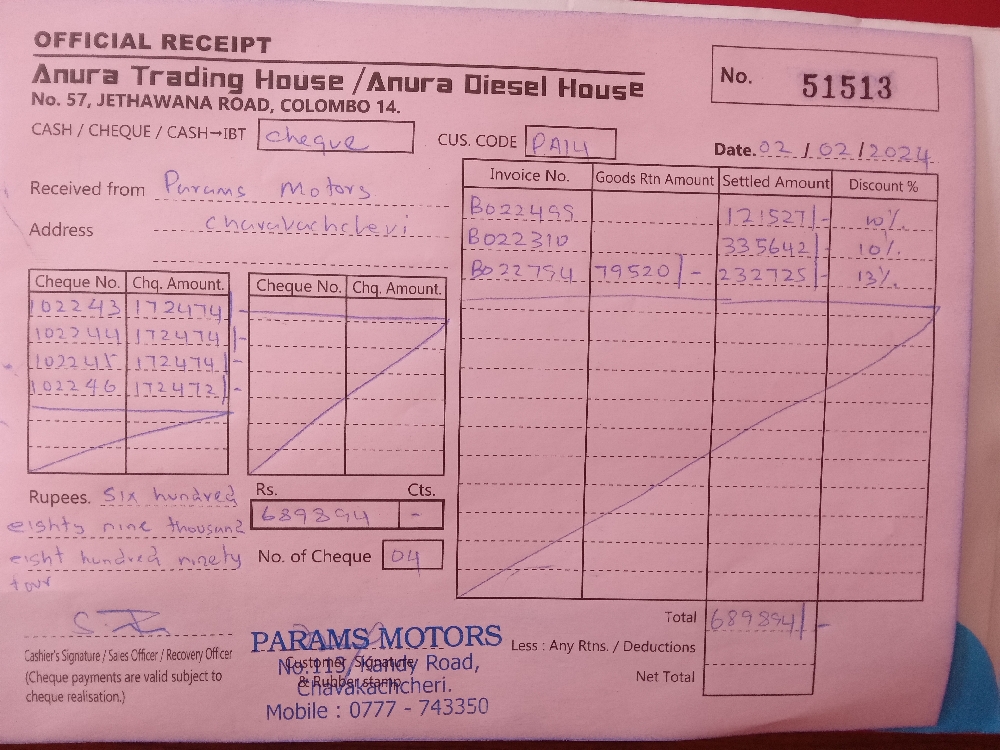 OFFICIAL RECEIPT
Anura Trading House / Anura Diesel House
No. 57, JETHAWANA ROAD, COLOMBO 14.
No. 51513
CASH / CHEQUE / CASH→IBT cheque CUS. CODE PA14
Date. 02 / 02 / 2024
Received from Params Motors
Address chavavachcheri
Cheque No. Chq. Amount.
102243 172474/-
102244 172474/-
102245 172474/-
102246 172472/-
Cheque No. Chq. Amount.
Invoice No. Goods Rtn Amount Settled Amount Discount %
B022499 121527/- 10%.
B022310 335642/- 10%.
B022794 79520/- 232725/- 13%
Rupees. Six hundred
eighty nine thousand
eight hundred ninety
four
Rs. Cts.
689894 -
No. of Cheque 04
Total 689894/-
Less : Any Rtns. / Deductions
Net Total
Cashier's Signature / Sales Officer / Recovery Officer
(Cheque payments are valid subject to
cheque realisation.)
Customer Signature
& Rubber stamp
PARAMS MOTORS
No.113, Kandy Road,
Chavakachcheri.
Mobile : 0777 - 743350